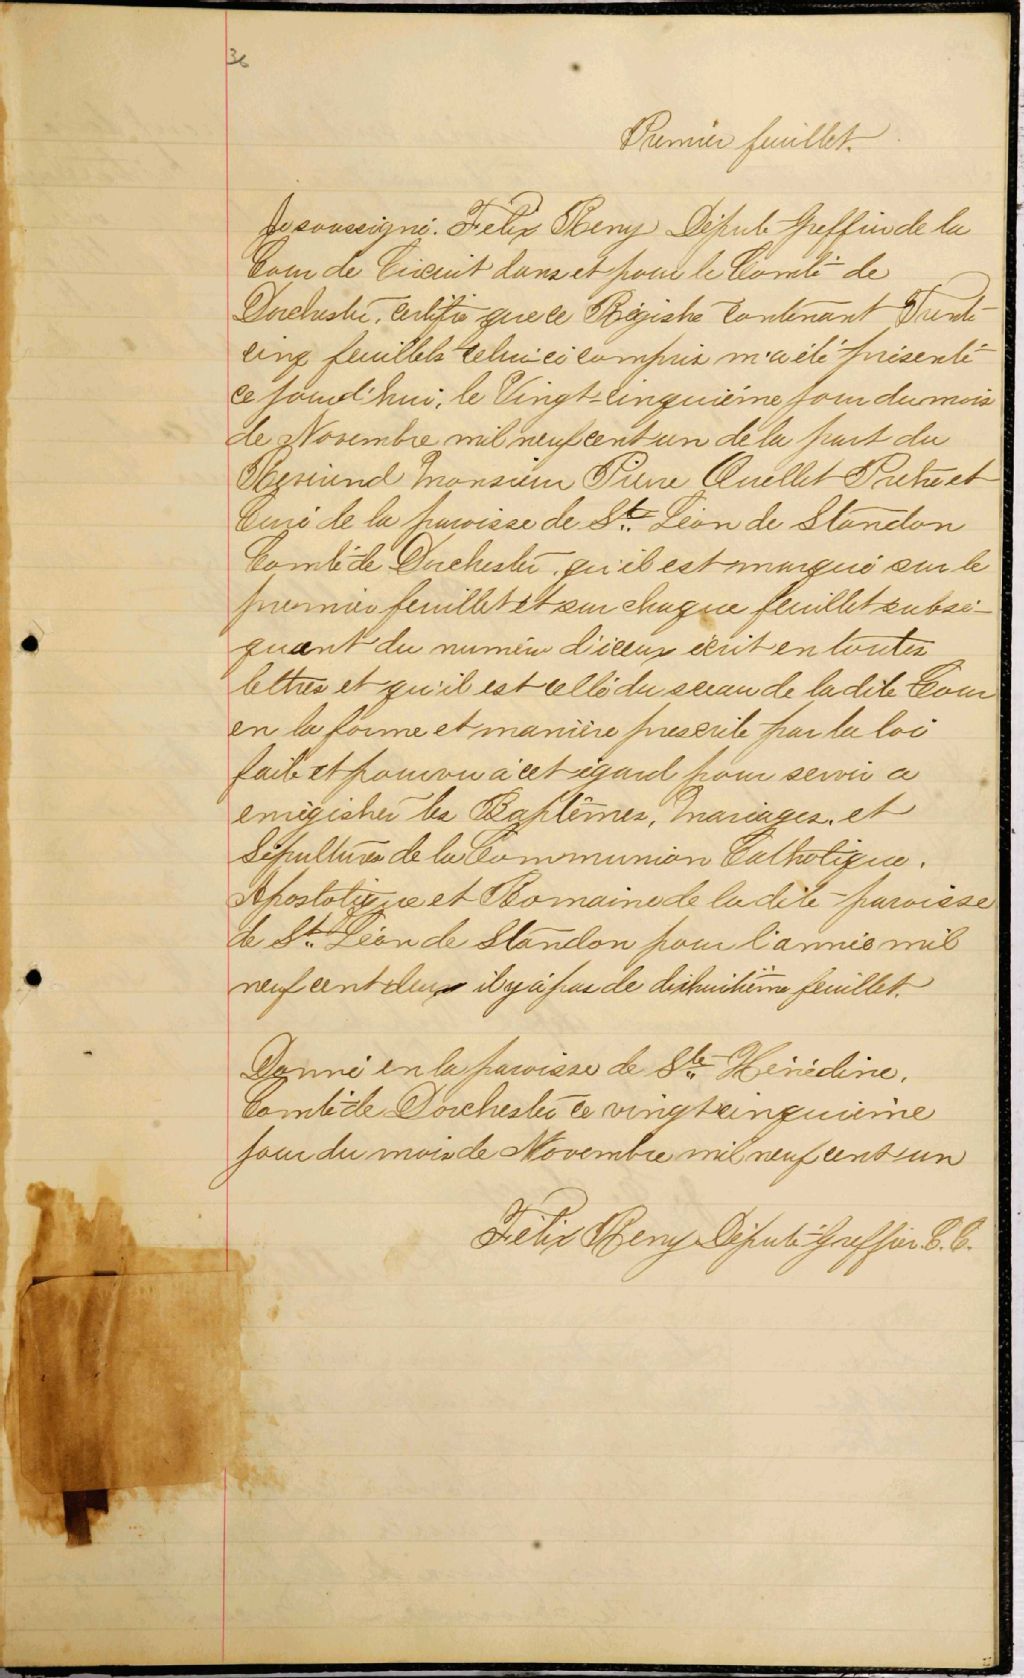 36
Premier feuillet.
Je soussigné. Félix Remy Député Greffier de la
Cour de Circuit dans et pour le Comté de
Dorchester, certifie que ce Régistre contenant Trente
cinq feuillets celui-ci compris m'a été présenté
ce jourd'hui, le Vingt-cinquième jour du mois
de Novembre mil neuf cent un de la part du
Reverend Monsieur Pierre Ouellet Prêtre et
Curé de la paroisse de St. Léon de Standon
Comté de Dorchester, qu'il est marqué sur le
premier feuillet et sur chaque feuillet subsé-
quent du numéro d'iceux écrit en toutes
lettres et qu'il est scellé du sceau de la dite Cour
en la forme et manière prescrite par la loi
faite et pourvu à cet égard pour servir a
enrégistrer les Baptêmes, Mariages, et
Sépultures de la Communion Catholique,
Apostolique et Romaine de la dite paroisse
de St. Léon de Standon pour l'année mil
neuf cent deux il y a pas de dixhuitième feuillet.
Donné en la paroisse de Ste Hénédine,
Comté de Dorchester ce vingt cinquième
jour du mois de Novembre mil neuf cent un
Félix Remy Député-Greffier. C. C.